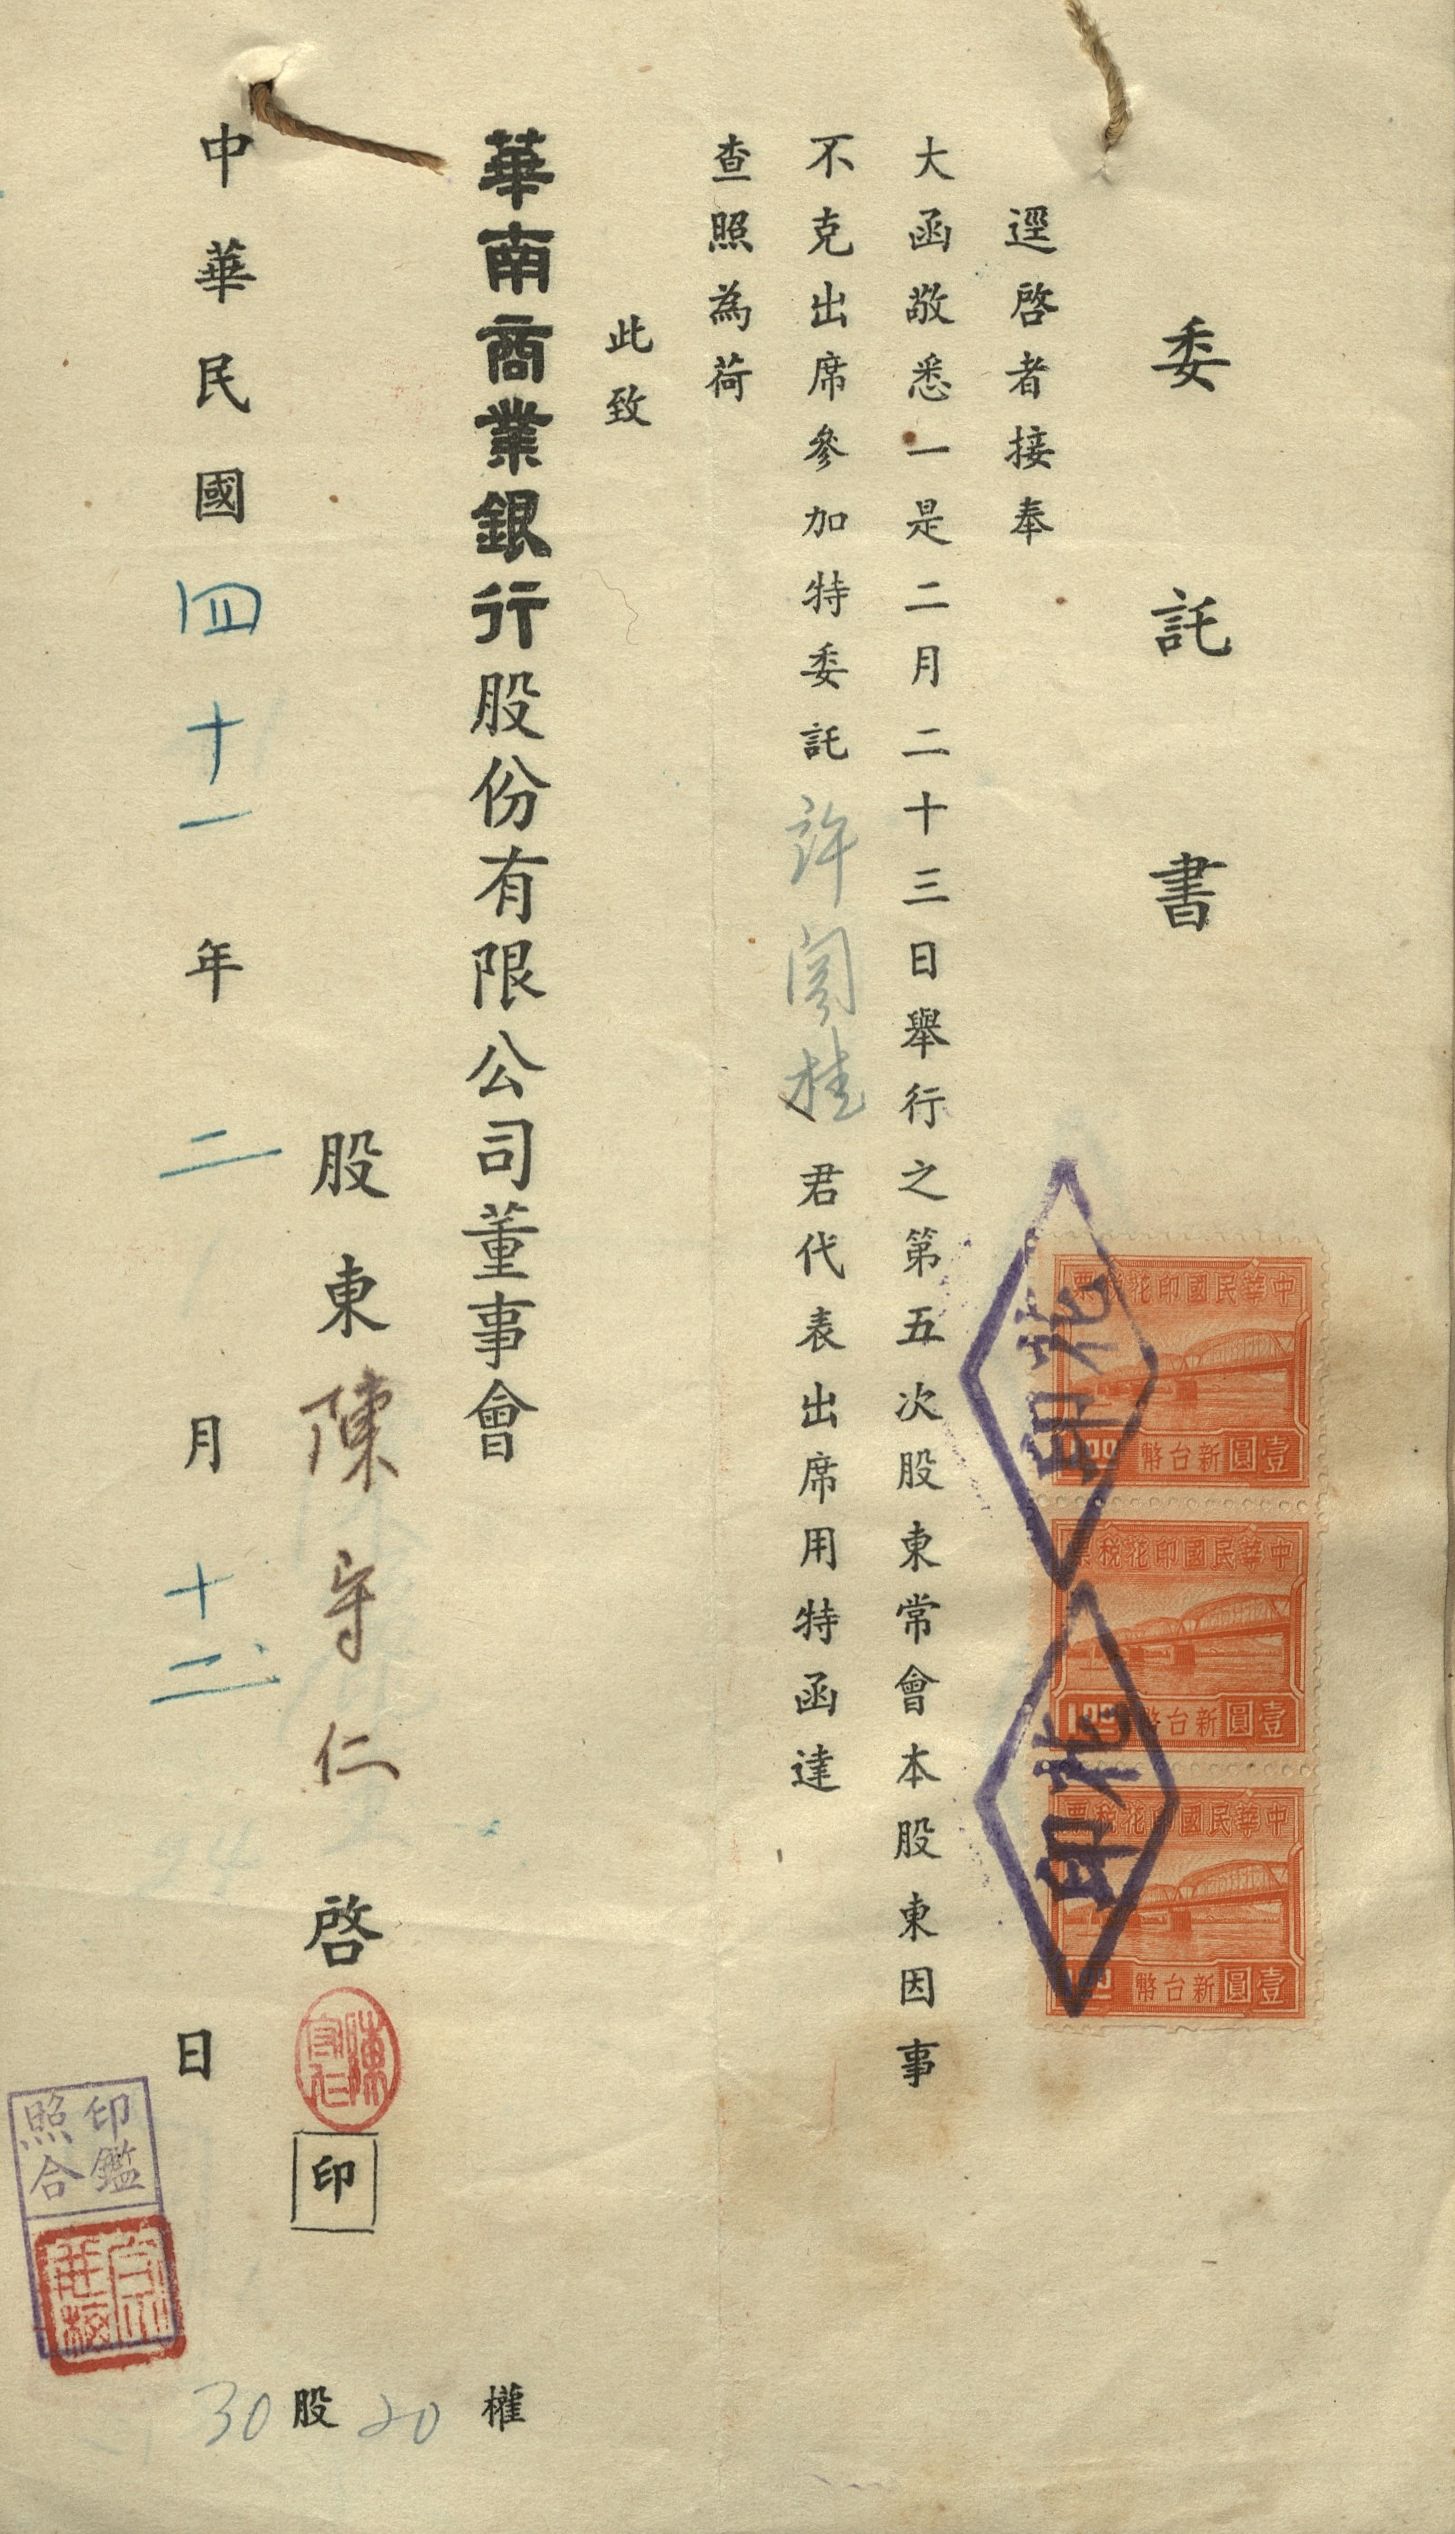 委託書
逕啓者接奉
大函敬悉一是二月二十三日舉行之第五次股東常會本股東因事
不克出席參加特委託許閣桂君代表出席用特函達
查照為荷
此致
華南商業銀行股份有限公司董事會
股東陳守仁啓
陳守仁
印
中華民國四十一年二月十二日
30股20權
印鑑
照合
中華民國印花稅票
壹圓新台幣
1.00
中華民國印花稅票
壹圓新台幣
1.00
中華民國印花稅票
壹圓新台幣
1.00
印花
印花